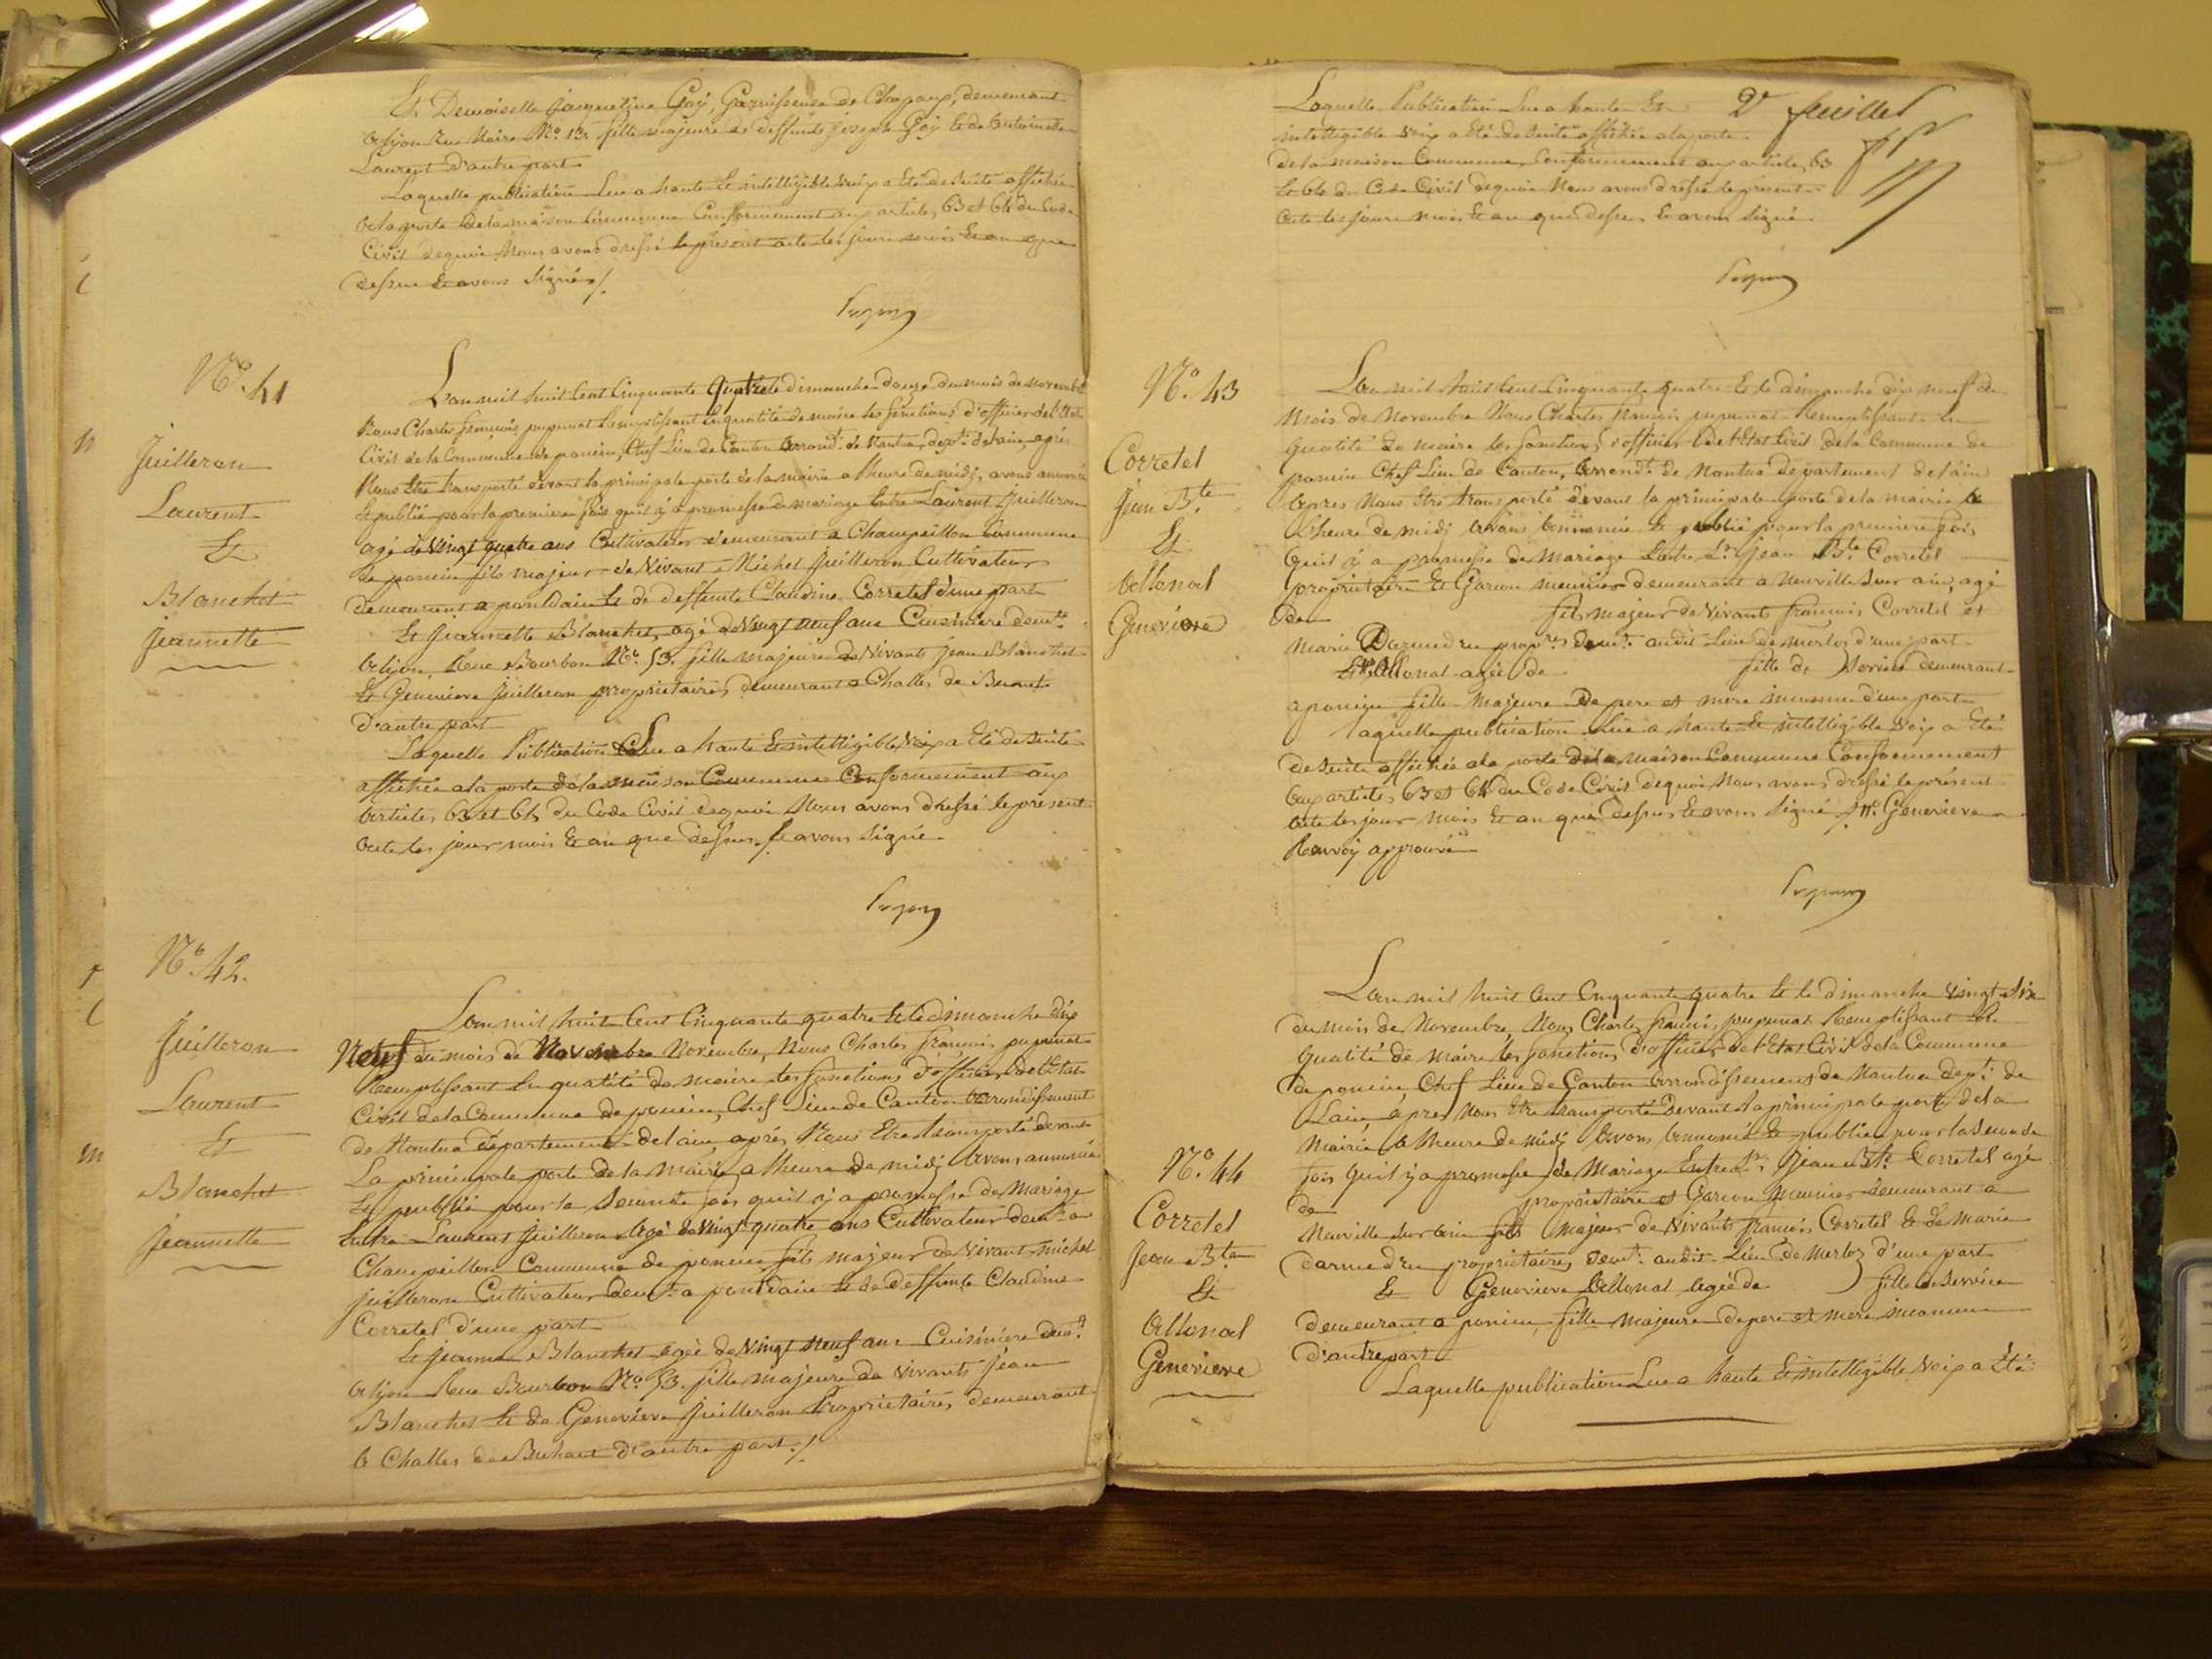 Et Demoiselle Jacqueline Goÿ, Garnisseuse de Chapaux, demeurant
a lyon Rue Noire No. 13. fille majeure de deffunts joseph Goÿ Et de Antoinette
Laurent D'autre part
Laquelle publication Lue a haute Et intelligible voix a Eté de suite affichée
a la porte de la maison Commune Conformement aux articles 63 et 64 du Code
Civil de quoi Nous avons dressé le présent acte les jour mois Et an que
dessus Et avons signé ./.
No. 41
Juilleron
Laurent
Et
Blanchet
Jeannette
L'an mil huit Cent Cinquante Quatre le dimanche douze du mois de novembre
Nous Charles françois pupunat Remplissant En qualité de maire les fonctions d'officier de l'Etat
Civil de la Commune de poncin, Chef Lieu de Canton arrondt. de Nantua, dept. de l'ain, après
Nous Etre transporté devant la principale porte de la mairie a l'heure de midj, avons annoncé
Et publié pour la premiere fois qu'il ÿ a promesse de mariage Entre Laurent Juilleron
agé de Vingt quatre ans Cultivateur demeurant a Champeillon Commune
de poncin fils majeur de Vivant Michel Juilleron Cultivateur
demeurant a pontdain Et de deffunte Claudine Corretel d'une part
Et Jeannette Blanchet, agé de Vingt neuf ans Cuisiniere demt.
a lyon, Rue Bourbon No. 53. fille majeure de Vivants Jean Blanchet
Et Genevieve Juilleron proprietaires demeurant a Challes de
D'autre part
Laquelle Publication Lue a haute Et intelligible Voix a Eté de suite
affichée a la porte de la maison Commune Conformement aux
articles 63 et 64 du Code Civil de quoi Nous avons dressé le present
acte les jour mois Et an que dessus Et avons signé
No. 42.
Juilleron
Laurent
Et
Blanchet
Jeannette
L'an mil huit Cent Cinquante quatre Et le dimanche dix
Neuf du mois de Novembre Novembre, Nous Charles françois pupunat
Remplissant En qualité de maire les fonctions d'officier de l'Etat
Civil de la Commune de poncin, Chef Lieu de Canton arrondissement
de Nantua departement de l'ain, après Nous Etre transporté devant
La principale porte de la mairie a l'heure de midj avons annoncé
Et publié pour la seconde fois qu'il ÿ a promesse de Mariage
Entre Laurent Juilleron agé de Vingt quatre ans Cultivateur demt. a
Champeillon Commune de poncin fils majeur de Vivant michel
Juilleron Cultivateur demt. a pontdain Et de deffunte Claudine
Corretel d'une part
Et Jeanne Blanchet agée de Vingt neuf ans Cuisiniere demt.
a lyon Rue Bourbon No. 53. fille majeure de vivants Jean
Blanchet Et de Genevieve Juilleron Proprietaires demeurant
a Challes de d'autre part ./.
Laquelle Publication Lue a haute Et
intelligible Voix a Eté de suite affichée a la porte
de la maison Commune, Conformement aux articles 63
Et 64 du Code Civil de quoi Nous avons dressé le present
acte les jours mois Et an que dessus Et avons signé
2e feuillet
No. 43
Corretel
Jean Bte.
Et
Allonal
Genevieve
L'an mil huit Cent Cinquante quatre Et le dimanche dix neuf du
mois de Novembre Nous Charles françois pupunat Remplissant En
qualité de maire les fonctions d'officier de l'Etat Civil de la Commune de
poncin Chef Lieu de Canton, arrondt. de Nantua departement de l'ain
apres Nous Etre transporté devant la principale porte de la mairie a
L'heure de midj avons annoncé Et publié pour la premiere fois
qu'il ÿ a promesse de mariage Entre Sr. Jean Bte. Corretel
proprietaire Et Garçon meunier demeurant a Neuville Sur ain, agé
de fils majeur de Vivants françois Corretel et
Marie Darmedru propres. demt. audit Lieu de Merloz d'une part
Et Allonal agée de fille de Service demeurant
a poncin fille Majeure De pere et mere inconnu d'une part
Laquelle publication Lue a haute Et intelligible Voix a Eté
de suite affichée a la porte de la maison Commune Conformement
aux articles 63 et 64 du Code Civil de quoi Nous avons dressé le présent
acte les jour mois Et an que dessus Et avons signé Genevieve
Renvoÿ approuvé
No. 44
Corretel
Jean Bte
Et
Allonal
Genevieve
L'an mil huit Cent Cinquante quatre Et le dimanche Vingt Six
du mois de Novembre, Nous Charles françois, pupunat Remplissant En
qualité de maire les fonctions d'officier de l'Etat Civil de la Commune
de poncin, Chef Lieu de Canton arrondissement de Nantua dept. de
L'ain, après Nous Etre transporté devant la principale porte de la
mairie a l'heure de midj avons annoncé Et publié pour la seconde
fois qu'il y a promesse de Mariage Entre Sr. Jean Bte. Corretel agé
de proprietaire et Garçon meunier demeurant a
Neuville sur ain fils majeur de Vivants françois Corretel Et de Marie
darmedru proprietaires demt. audit Lieu de Merloz d'une part
Et Genevieve Allonal agée de fille de Service
demeurant a poncin, fille majeure de pere et mere inconnu
D'autre part
Laquelle publication Lue a haute Et intelligible Voix a Eté